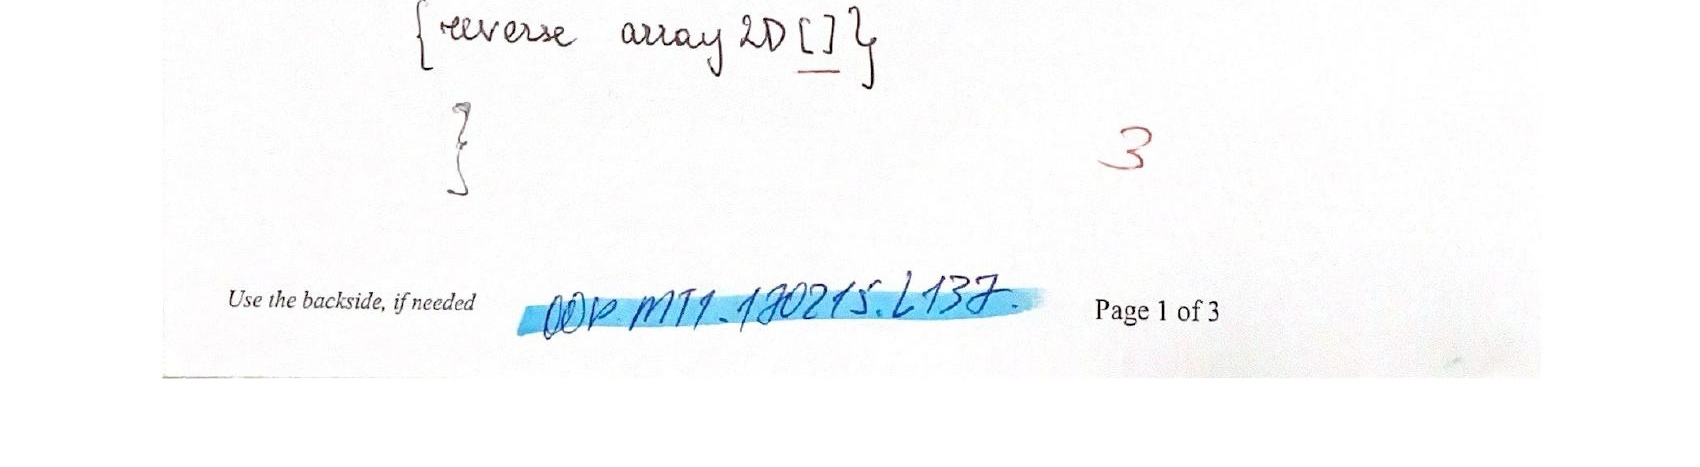 {reverse array 2D []}
}
3
Use the backside, if needed OOP. MT1. 170215. L137. Page 1 of 3